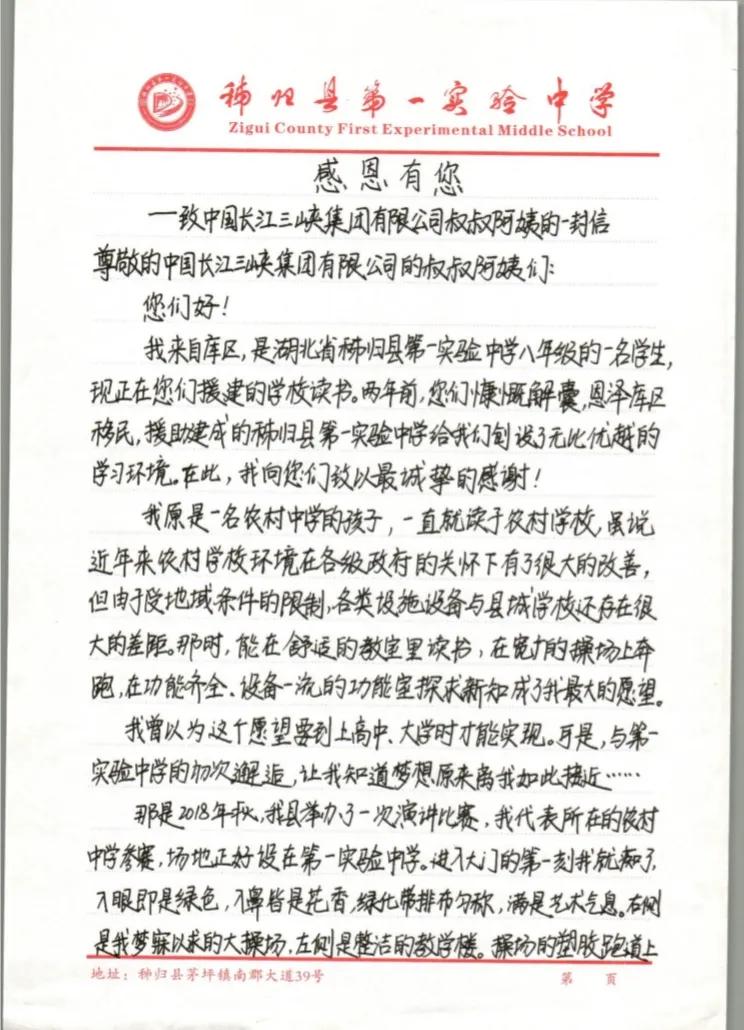 秭归县第一实验中学
Zigui County First Experimental Middle School
感恩有您
一致中国长江三峡集团有限公司叔叔阿姨的一封信
尊敬的中国长江三峡集团有限公司的叔叔阿姨们:
您们好!
我来自库区,是湖北省秭归县第一实验中学八年级的一名学生,
现正在您们援建的学校读书。两年前,您们慷慨解囊,恩泽库区
移民,援助建成的秭归县第一实验中学给我们创设了无比优越的
学习环境。在此,我向您们致以最诚挚的感谢!
我原是一名农村中学的孩子,一直就读于农村学校,虽说
近年来农村学校环境在各级政府的关怀下有了很大的改善,
但由于受地域条件的限制,各类设施设备与县城学校还存在很
大的差距。那时,能在舒适的教室里读书,在宽广的操场上奔
跑,在功能齐全、设备一流的功能室探求新知成了我最大的愿望。
我曾以为这个愿望要到上高中、大学时才能实现。可是,与第一
实验中学的初次邂逅,让我知道梦想原来离我如此接近……
那是2018年秋,我县举办了一次演讲比赛,我代表所在的农村
中学参赛,场地正好设在第一实验中学。进入大门的第一刻我就痴了,
入眼即是绿色,入鼻皆是花香,绿化带排布匀称,满是艺术气息。右侧
是我梦寐以求的大操场,左侧是整洁的教学楼。操场的塑胶跑道上
地址:秭归县茅坪镇南郡大道39号
第 页